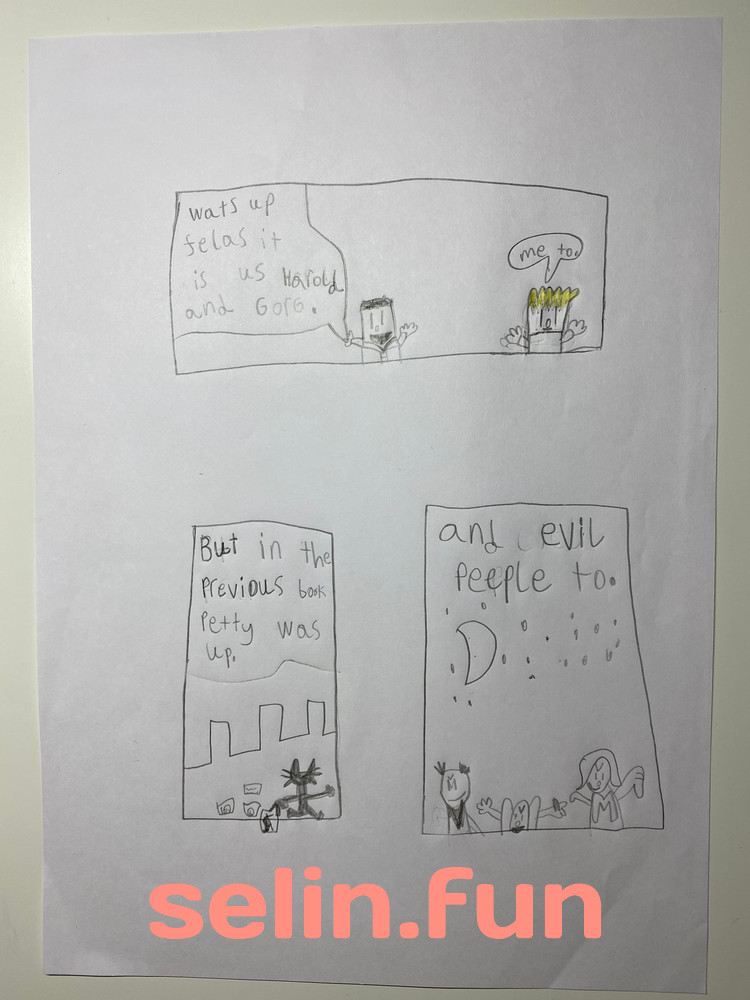 wats up
felas it
is us Harold
and Gorg.
me to.
But in the
previous book
Petty was
up.
and evil
peeple to.
M
M
selin.fun